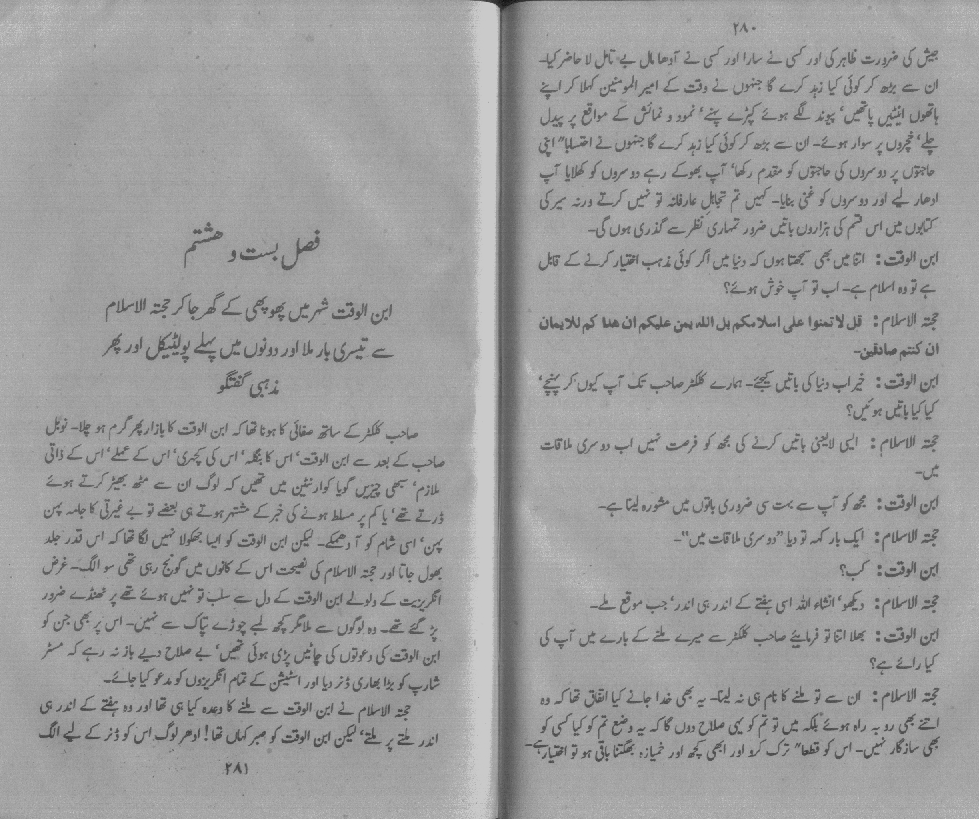 ۲۸۰
جیش کی ضرورت ظاہر کی اور کسی نے سارا اور کسی نے آدھا مال بے تامل لا حاضر کیا۔
ان سے بڑھ کر کوئی کیا زہد کرے گا جنہوں نے وقت کے امیر المومنین کہلا کر اپنے
ہاتھوں اینٹیں پاتھیں، پیوند لگے ہوئے کپڑے پہنے، نمود و نمائش کے مواقع پر پیدل
چلے، خچروں پر سوار ہوئے۔ ان سے بڑھ کر کوئی کیا زہد کرے گا جنہوں نے احتسابا" اپنی
حاجتوں پر دوسروں کی حاجتوں کو مقدم رکھا، آپ بھوکے رہے دوسروں کو کھلایا آپ
ادھار لیے اور دوسروں کو غنی بنایا۔ کہیں تم تجاہل عارفانہ تو نہیں کرتے ورنہ سیر کی
کتابوں میں اس قسم کی ہزاروں باتیں ضرور تمہاری نظر سے گذری ہوں گی۔
ابن الوقت: اتنا میں بھی سمجھتا ہوں کہ دنیا میں اگر کوئی مذہب اختیار کرنے کے قابل
ہے تو وہ اسلام ہے۔ اب تو آپ خوش ہوئے؟
حجتہ الاسلام: قل لا تمنوا علی اسلامکم بل اللہ یمن علیکم ان ھدا کم للایمان
ان کنتم صادقین۔
ابن الوقت: خیر اب دنیا کی باتیں کیجئے۔ ہمارے کلکٹر صاحب تک آپ کیوں کر پہنچے،
کیا کیا باتیں ہوئیں؟
حجتہ الاسلام: ایسی لایعنی باتیں کرنے کی مجھ کو فرصت نہیں اب دوسری ملاقات
میں۔
ابن الوقت: مجھ کو آپ سے بہت سی ضروری باتوں میں مشورہ لینا ہے۔
حجتہ الاسلام: ایک بار کہہ تو دیا "دوسری ملاقات میں"۔
ابن الوقت: کب؟
حجتہ الاسلام: دیکھو، انشاء اللہ اسی ہفتے کے اندر ہی اندر، جب موقع ملے۔
ابن الوقت: بھلا اتنا تو فرمائیے صاحب کلکٹر سے میرے ملنے کے بارے میں آپ کی
کیا رائے ہے؟
حجتہ الاسلام: ان سے تو ملنے کا نام ہی نہ لینا۔ یہ بھی خدا جانے کیا اتفاق تھا کہ وہ
اتنے بھی رو بہ راہ ہوئے بلکہ میں تو تم کو یہی صلاح دوں گا کہ یہ وضع تم کو کیا کسی کو
بھی سازگار نہیں۔ اس کو قطعا" ترک کرو اور ابھی کچھ اور خمیازہ بھگتنا باقی ہو تو اختیار ہے۔
فصل بست و ہشتم
ابن الوقت شہر میں پھوپھی کے گھر جا کر حجتہ الاسلام
سے تیسری بار ملا اور دونوں میں پہلے پولیٹیکل اور پھر
مذہبی گفتگو
صاحب کلکٹر کے ساتھ صفائی کا ہونا تھا کہ ابن الوقت کا بازار پھر گرم ہو چلا۔ نوبل
صاحب کے بعد سے ابن الوقت، اس کا بنگلہ، اس کی کچہری، اس کے عملے، اس کے ذاتی
ملازم، سبھی چیزیں گویا کوارنٹین میں تھیں کہ لوگ ان سے مٹھ بھیڑ کرتے ہوئے
ڈرتے تھے، یا کم پر مسلط ہونے کی خبر کے مشتہر ہوتے ہی بعضے تو بے غیرتی کا جامہ پہن
پہن، اسی شام کو آ دھمکے۔ لیکن ابن الوقت کو ایسا جھکولا نہیں لگا تھا کہ اس قدر جلد
بھول جاتا اور حجتہ الاسلام کی نصیحت اس کے کانوں میں گونج رہی تھی سو الگ۔ غرض
انگریزیت کے ولولے ابن الوقت کے دل سے سلب تو نہیں ہوئے تھے پر ٹھنڈے ضرور
پڑ گئے تھے۔ وہ لوگوں سے ملا مگر کچھ لمبے چوڑے تپاک سے نہیں۔ اس پر بھی جن کو
ابن الوقت کی دعوتوں کی چاٹیں پڑی ہوئی تھیں، بے صلاح دیے باز نہ رہے کہ مسٹر
شارپ کو بڑا بھاری ڈنر دیا اور اسٹیشن کے تمام انگریزوں کو مدعو کیا جائے۔
حجتہ الاسلام نے ابن الوقت سے ملنے کا وعدہ کیا ہی تھا اور وہ ہفتے کے اندر ہی
اندر ملتے پر ملتے، لیکن ابن الوقت کو صبر کہاں تھا! ادھر لوگ اس کو ڈنر کے لیے الگ
۲۸۱